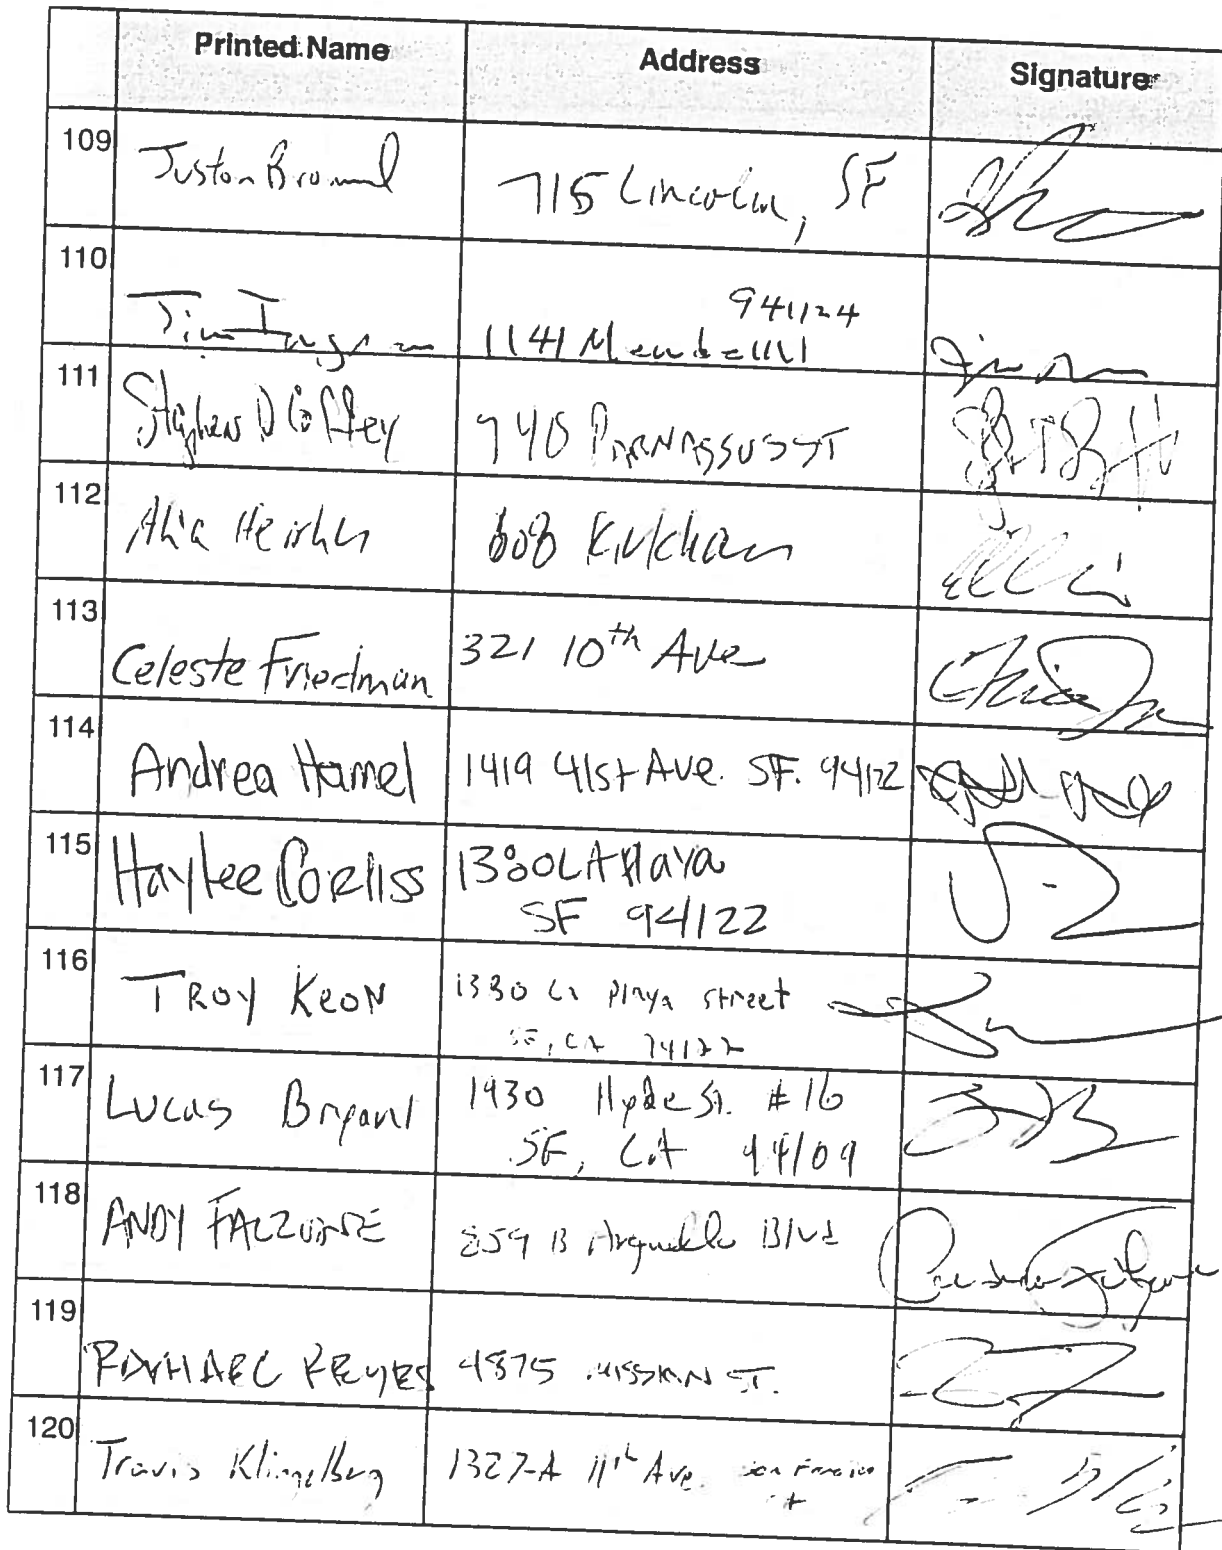 Printed Name Address Signature
109 Juston 715 Lincoln, SF
110 Jim Ingram 1141 94124
111 Stephen D Coffey 740 PARNASSUS ST
112 608 Kirkham
113 Celeste Friedman 321 10th Ave
114 Andrea Hamel 1419 41st Ave. SF. 94122
115 Haylee Corliss 1380 LA Playa
SF 94122
116 TROY KEON 1380 La Playa street
SF, CA 94122
117 Lucas Bryant 1930 Hyde St. #16
SF, CA 94109
118 ANDY FALZONE 859 B Arguello Blvd
119 RAPHAEL REYES 4875 MISSION ST.
120 Travis Klingelberg 1327-A 11th Ave. San Francisco